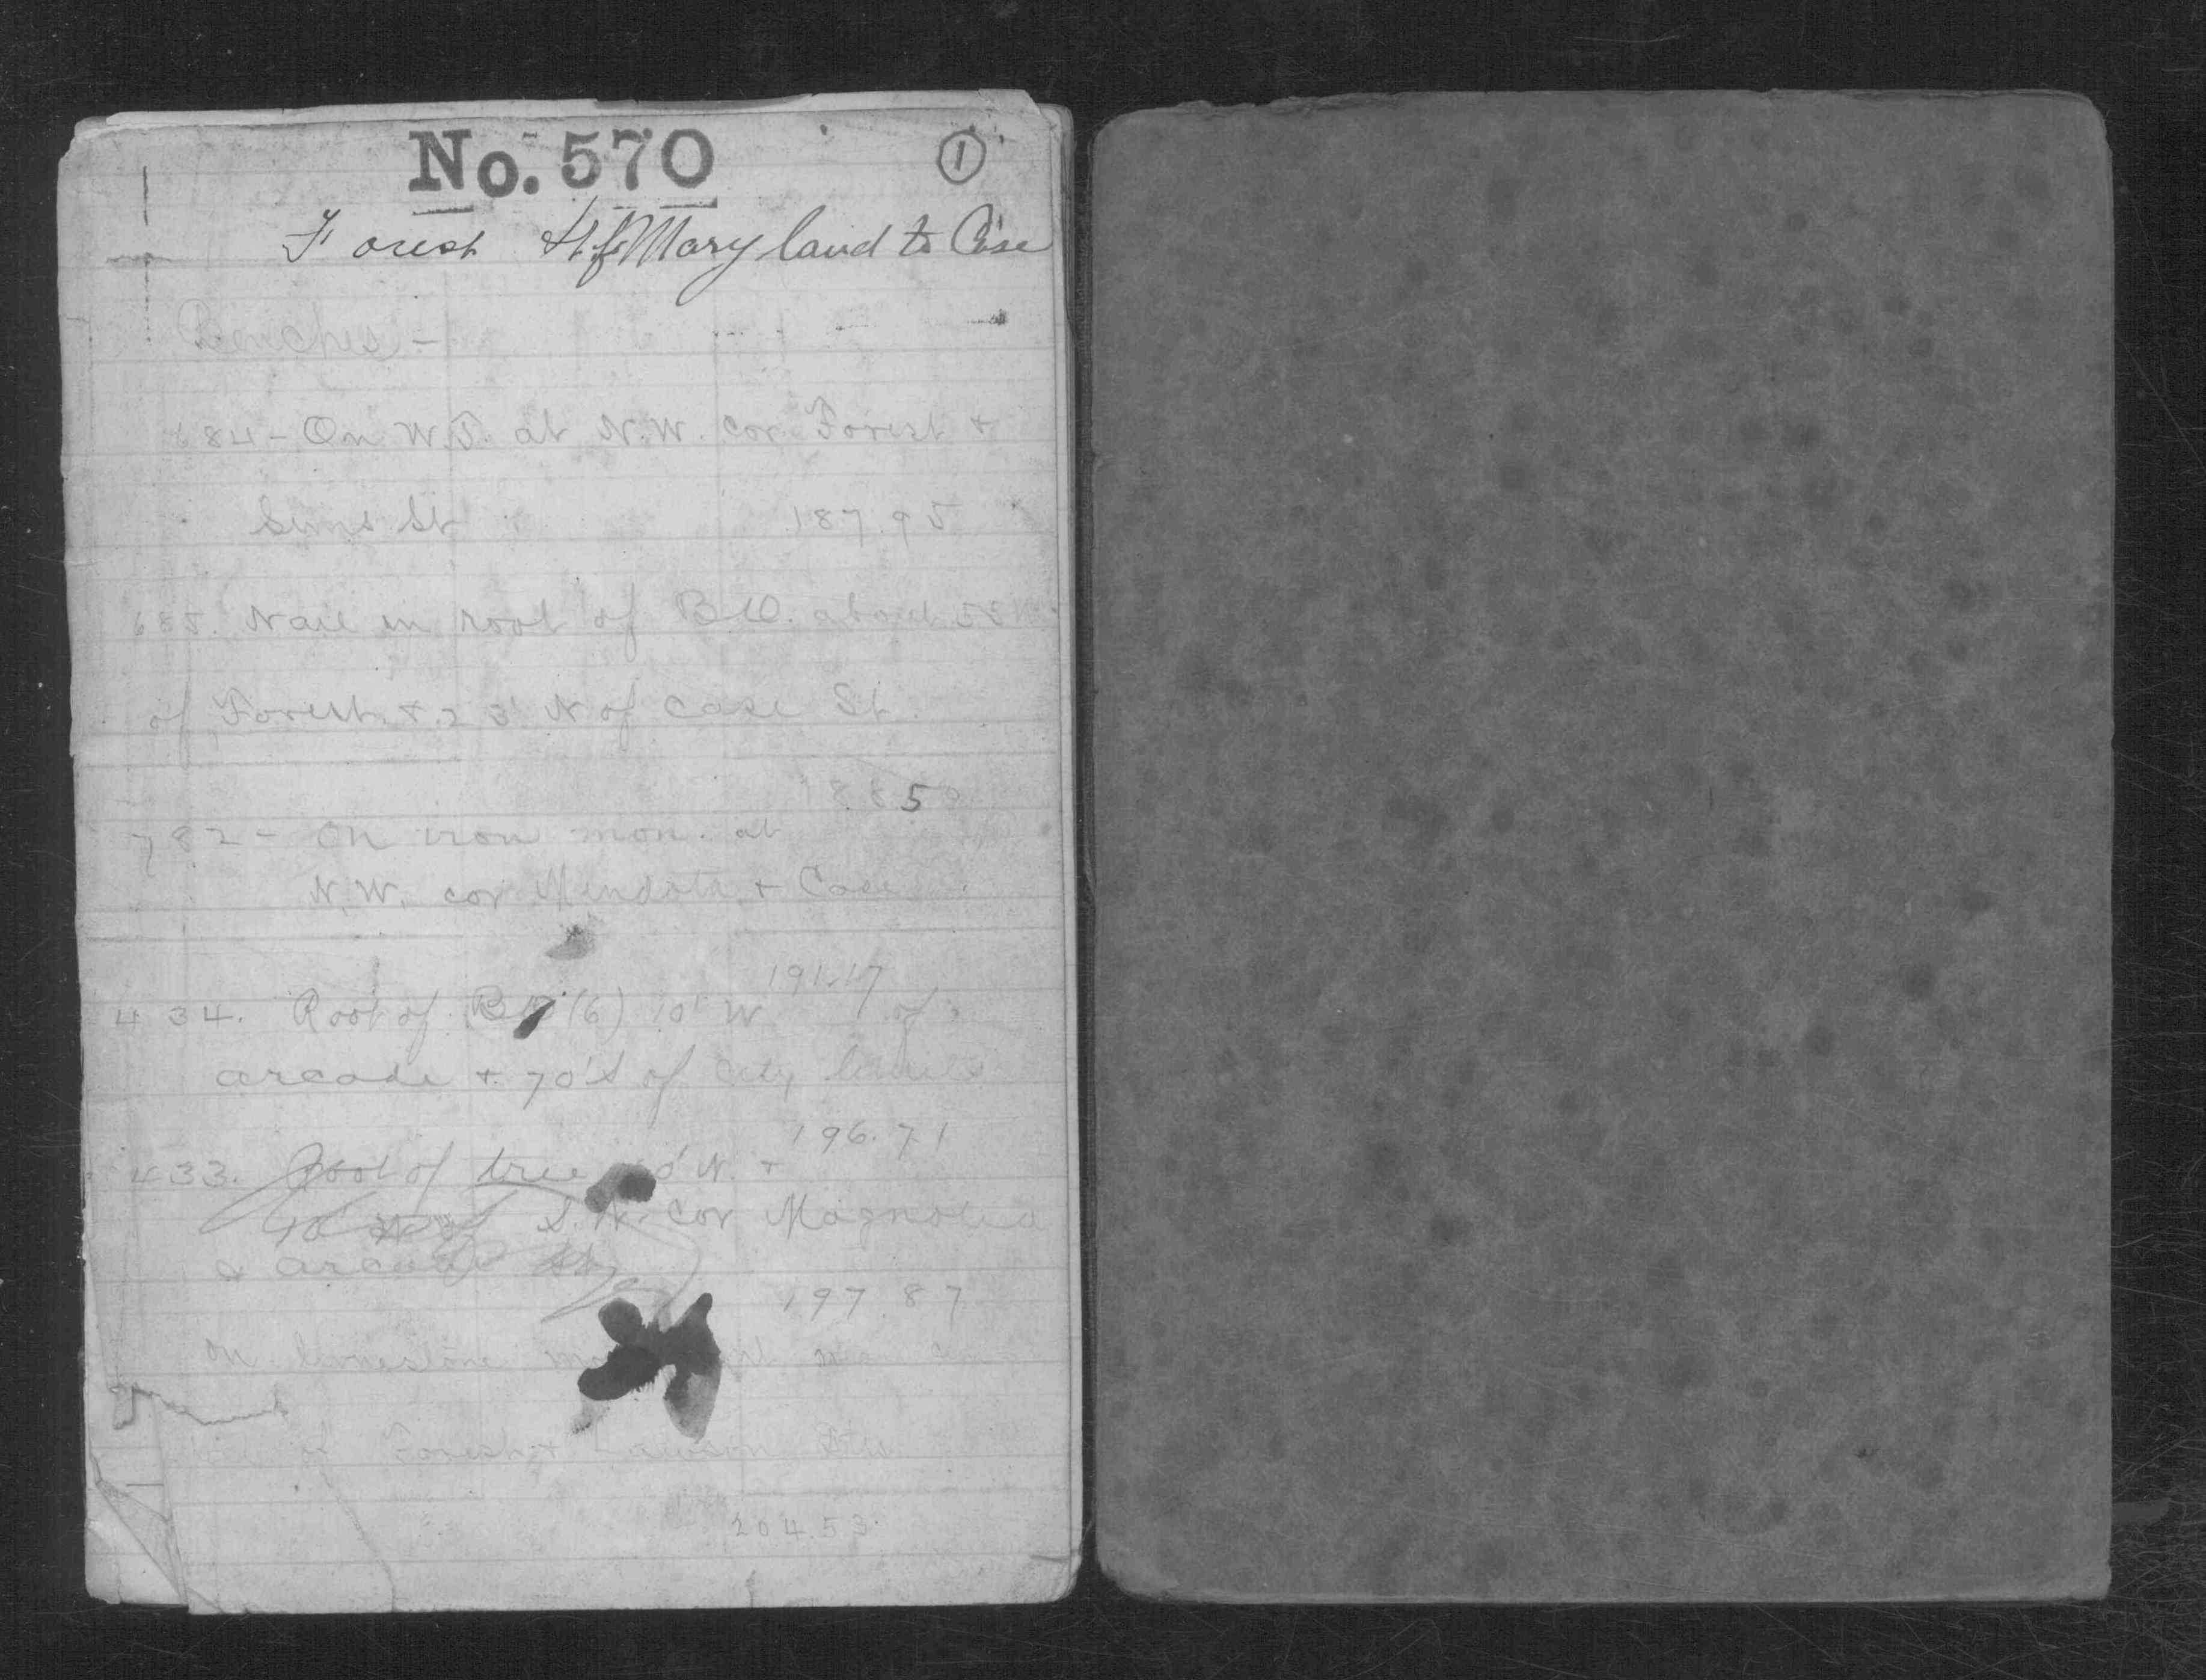 No. 570
1
Forest St. f. Maryland to Case
Benches -
684 - On W.T. at N.W. cor Forest +
Sims St 187.95
685. Nail in root of B.O. about 53
of Forest + 23' N of Case St.
188 5
782 - On iron mon. at
N.W. cor Mendota + Case
191.17
434. Root of B (6) 10' W of
arcade + 70' S of City limits
196.71
433. Root of tree N. +
10' W of S.W. cor Magnolia
& arcade Sts
197.87
On limestone
of Forest + Lawson Sts
204.53